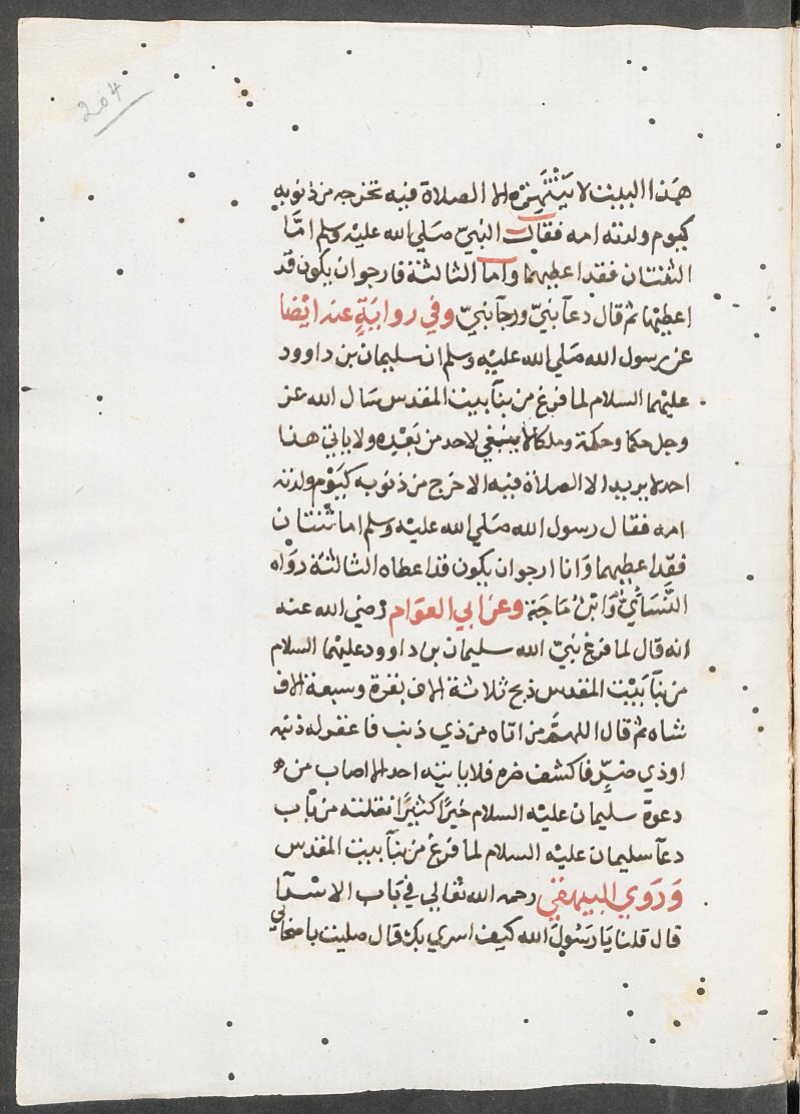 204
هذا البيت لا ينهزه الا الصلاة فيه تخرجه من ذنوبه
كيوم ولدته امه فقال النبيّ صَلي الله عليْه وسلم امّا
الثنتان فقد اعطيهما واما الثالثة فارجوا ان يكون قد
اعطيها ثم قال دعآ نبيّ ورجآ نبيّ وفي روايَةٍ عنه ايْضا
عن رسول الله صَلي الله عليْه وسلم ان سليمان بن داوود
عليهما السلام لما فرغ من بنآ بيت المقدس سَال الله عز
وجل حكما وحكمة وملكا لا ينبغي لاحد من بَعْده ولا ياتي هذا
احد لا يريد الا الصلاة فيه الا خرج من ذنوبه كيَوْم ولدته
امه فقال رسول الله صَلي الله عليْه وسلم اما ثنتان
فقد اعطيهما وَانا ارجوا ان يكون قد اعطاه الثالثة روَاه
النَّسَائيُّ وَابْنُ مَاجَة وعن ابي العوَام رَضي الله عنه
انه قال لما فرغ نبيّ الله سليمان بن داوود عليهما السلام
من بنآ بَيْت المقدس ذبح ثلاثة الاف بقرة وسبعة الاف
شاه ثم قال اللهمَّ من اتاه من ذي ذنب فاغفر له ذنبه
اوذي ضرٍّ فاكشف ضره فلا ياتيْه احد الا اصاب من
دعوة سليمان عليْه السلام خيرًا كثيْرًا نقلته من بَاب
دعآ سليمان عليْه السلام لما فرغ من بنآ بيت المقدس
وَرَوي البيهقي رحمه الله تعَالي في بَاب الاسْرآ
قال قلنا يَا رَسُولَ الله كيف اسري بك قال صليت باصحابي